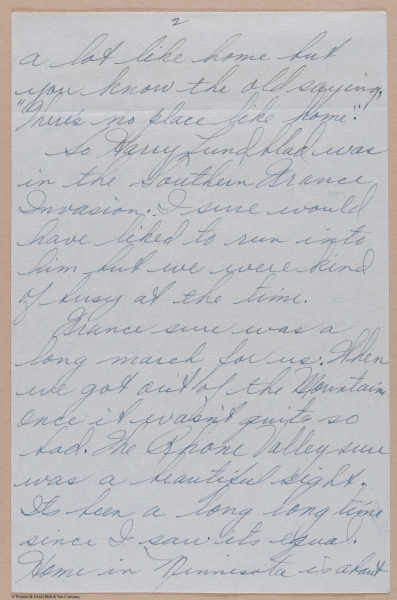 2
a lot like home but
you know the old saying,
"There's no place like home."
So Harry Lundblad was
in the Southern France
Invasion. I sure would
have liked to run into
him but we were kind
of busy at the time.
France sure was a
long march for us. When
we got out of the Mountains
once it wasn't quite so
bad. The Rhone Valley sure
was a beautiful sight.
Its been a long long time
since I saw its equal.
Home in Minnesota is about